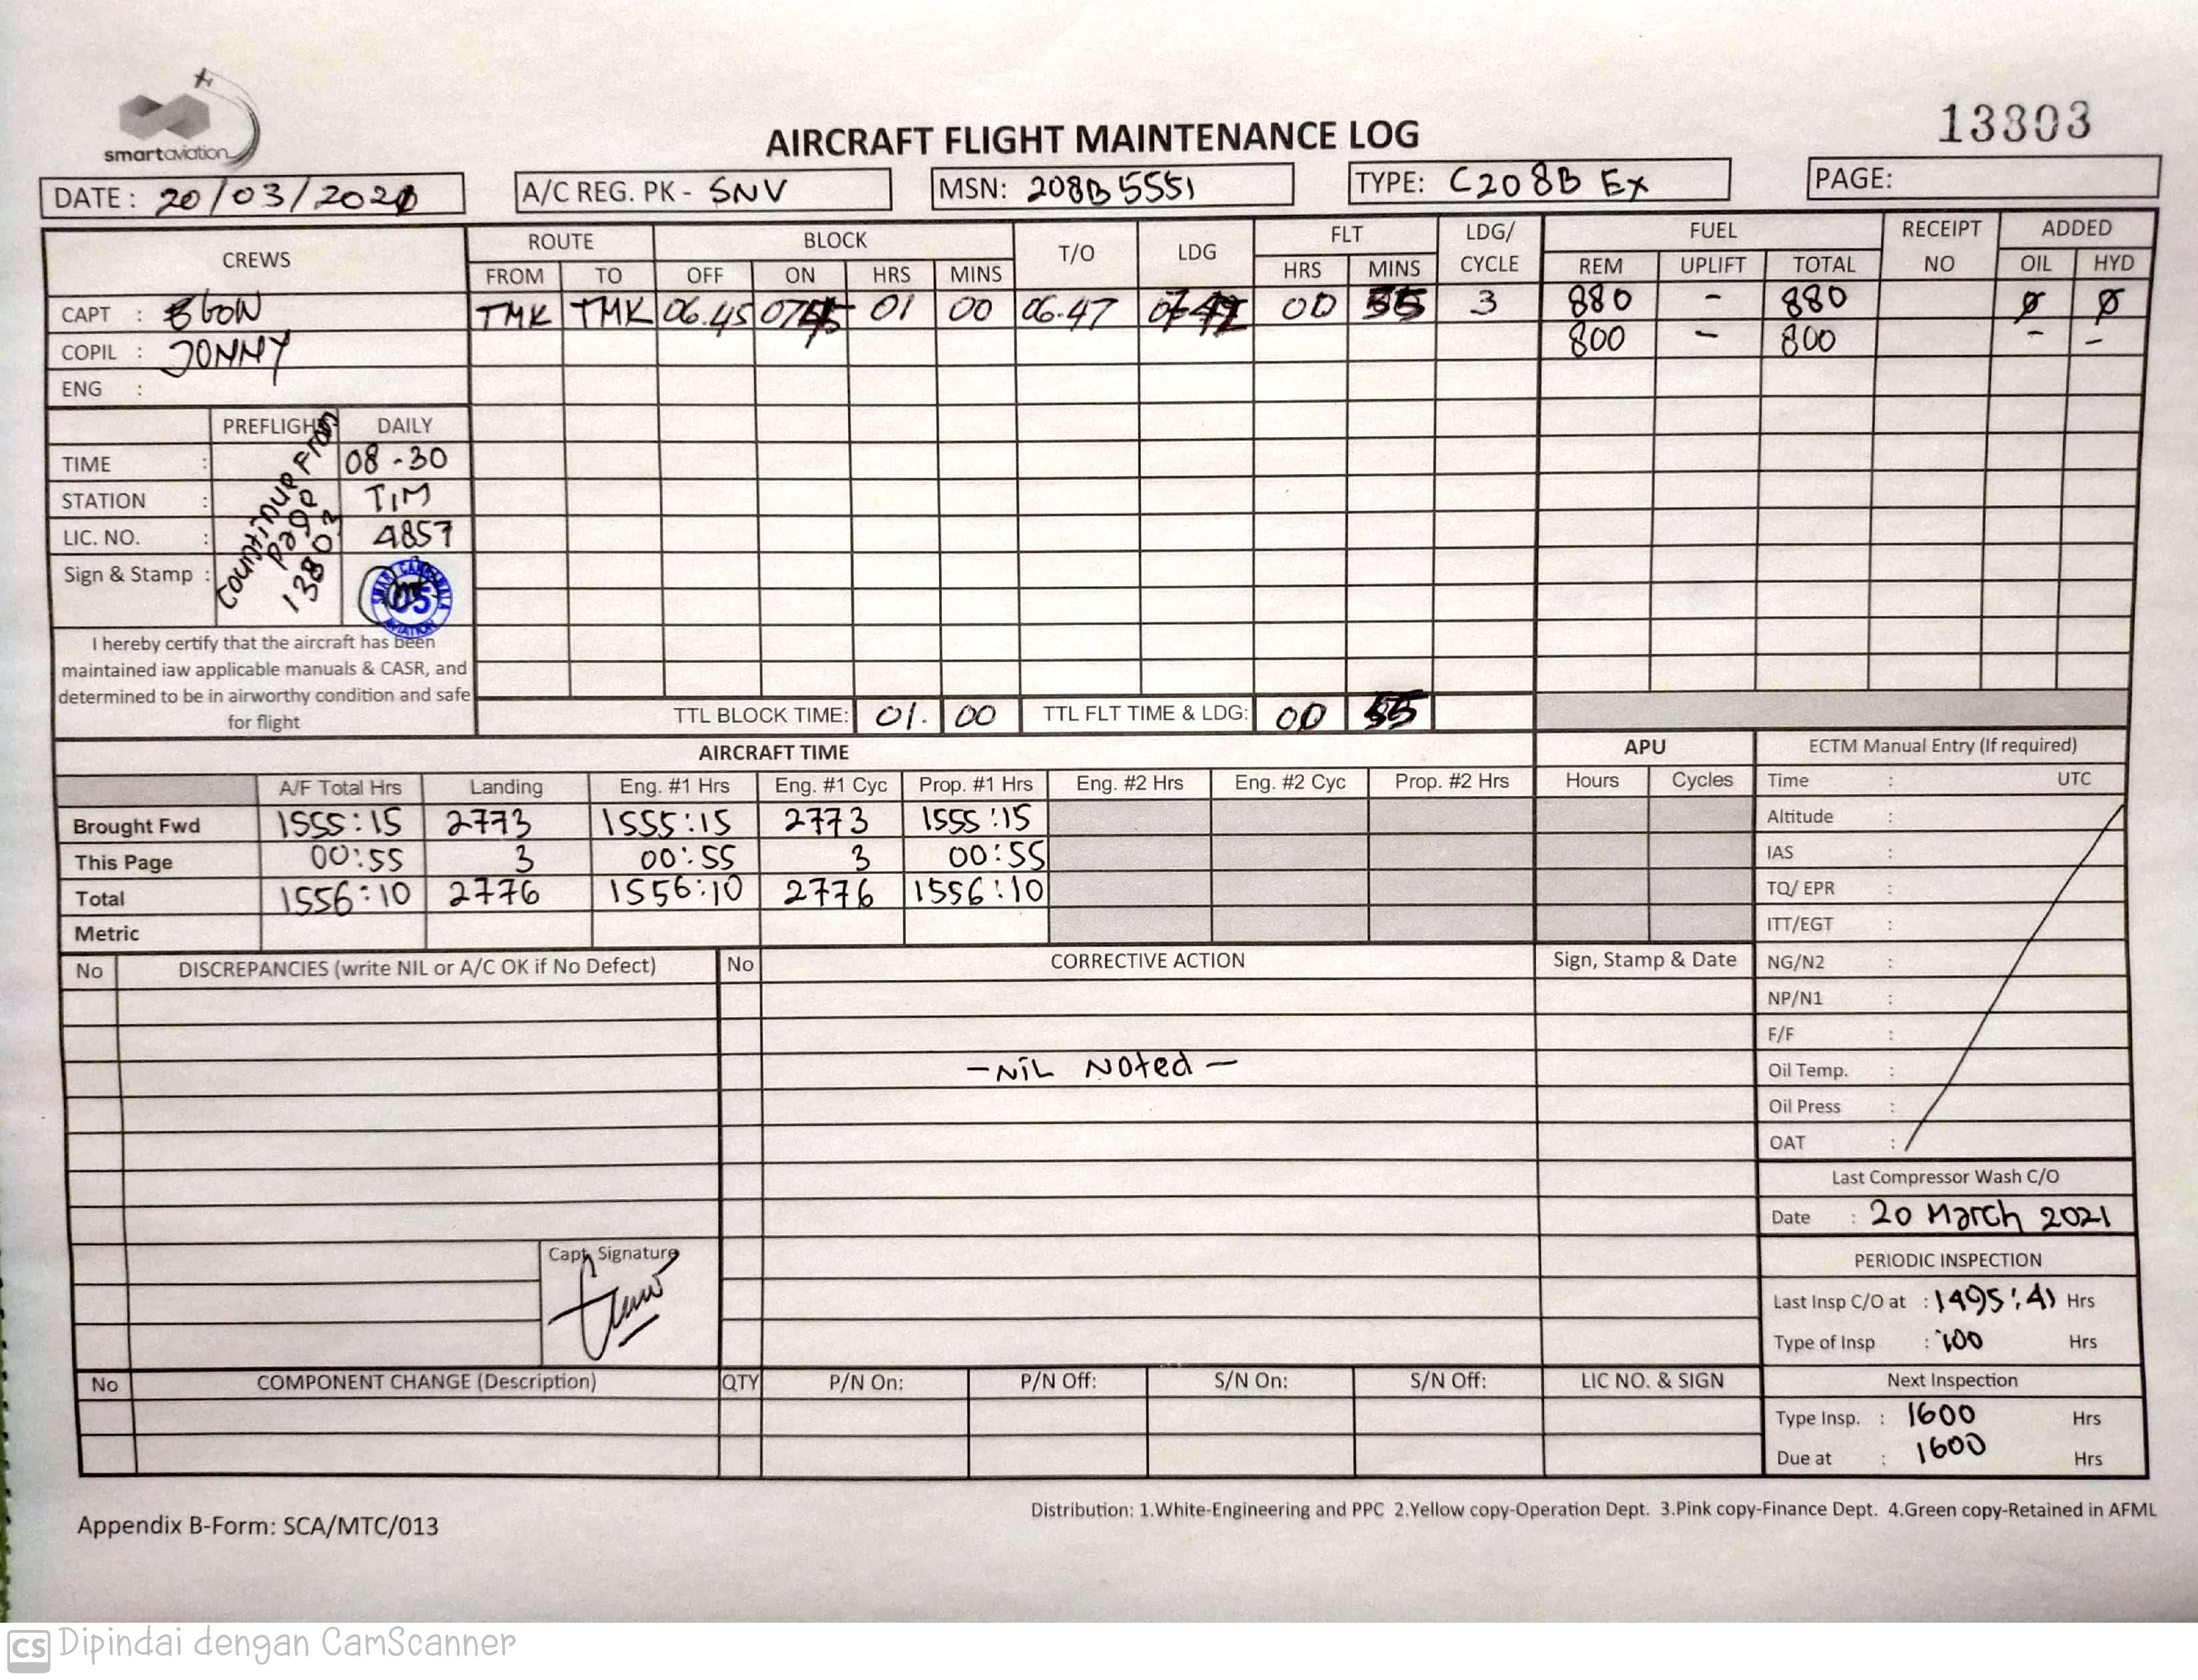 smartaviation
AIRCRAFT FLIGHT MAINTENANCE LOG
13303
DATE : 20/03/2021
A/C REG. PK - SNV
MSN: 208B5551
TYPE: C208B EX
PAGE:
CREWS
ROUTE BLOCK T/O LDG FLT LDG/ CYCLE FUEL RECEIPT NO ADDED
FROM TO OFF ON HRS MINS HRS MINS REM UPLIFT TOTAL OIL HYD
CAPT : EGON
TMK TMK 06.45 01 00 06.47 00 55 3 880 - 880 ø ø
COPIL : JONNY
800 - 800 - -
ENG :
PREFLIGHT DAILY
TIME : 08-30
STATION : TIM
LIC. NO. : 4857
Sign & Stamp :
Countinue From
page
13802
SMART CAKRAWALA
05
AVIATION
I hereby certify that the aircraft has been
maintained iaw applicable manuals & CASR, and
determined to be in airworthy condition and safe
for flight
TTL BLOCK TIME: 01. 00 TTL FLT TIME & LDG: 00 55
AIRCRAFT TIME APU
A/F Total Hrs Landing Eng. #1 Hrs Eng. #1 Cyc Prop. #1 Hrs Eng. #2 Hrs Eng. #2 Cyc Prop. #2 Hrs Hours Cycles
Brought Fwd 1555:15 2773 1555:15 2773 1555:15
This Page 00:55 3 00:55 3 00:55
Total 1556:10 2776 1556:10 2776 1556:10
Metric
ECTM Manual Entry (If required)
Time : UTC
Altitude :
IAS :
TQ/ EPR :
ITT/EGT :
NG/N2 :
NP/N1 :
F/F :
Oil Temp. :
Oil Press :
OAT :
No DISCREPANCIES (write NIL or A/C OK if No Defect) No CORRECTIVE ACTION Sign, Stamp & Date
- NIL Noted -
Capt. Signature
Last Compressor Wash C/O
Date : 20 March 2021
PERIODIC INSPECTION
Last Insp C/O at : 1495:41 Hrs
Type of Insp : 100 Hrs
No COMPONENT CHANGE (Description) QTY P/N On: P/N Off: S/N On: S/N Off: LIC NO. & SIGN
Next Inspection
Type Insp. : 1600 Hrs
Due at : 1600 Hrs
Appendix B-Form: SCA/MTC/013
Distribution: 1.White-Engineering and PPC 2.Yellow copy-Operation Dept. 3.Pink copy-Finance Dept. 4.Green copy-Retained in AFML
CS Dipindai dengan CamScanner